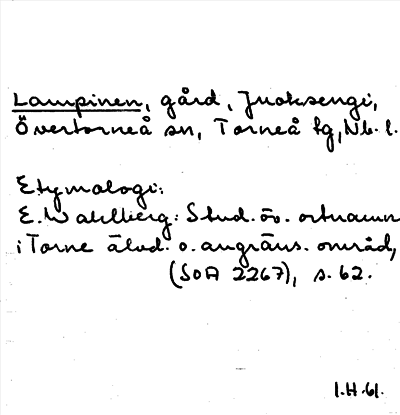 Lampinen, gård, Juoksengi,
Övertorneå sn, Torneå tg, Nb. l.
Etymologi:
E. Wahlberg: Stud. öv. ortnamn
i Torne älvd. o. angräns. områd,
(SOA 2267), s. 62.
I.H.61.